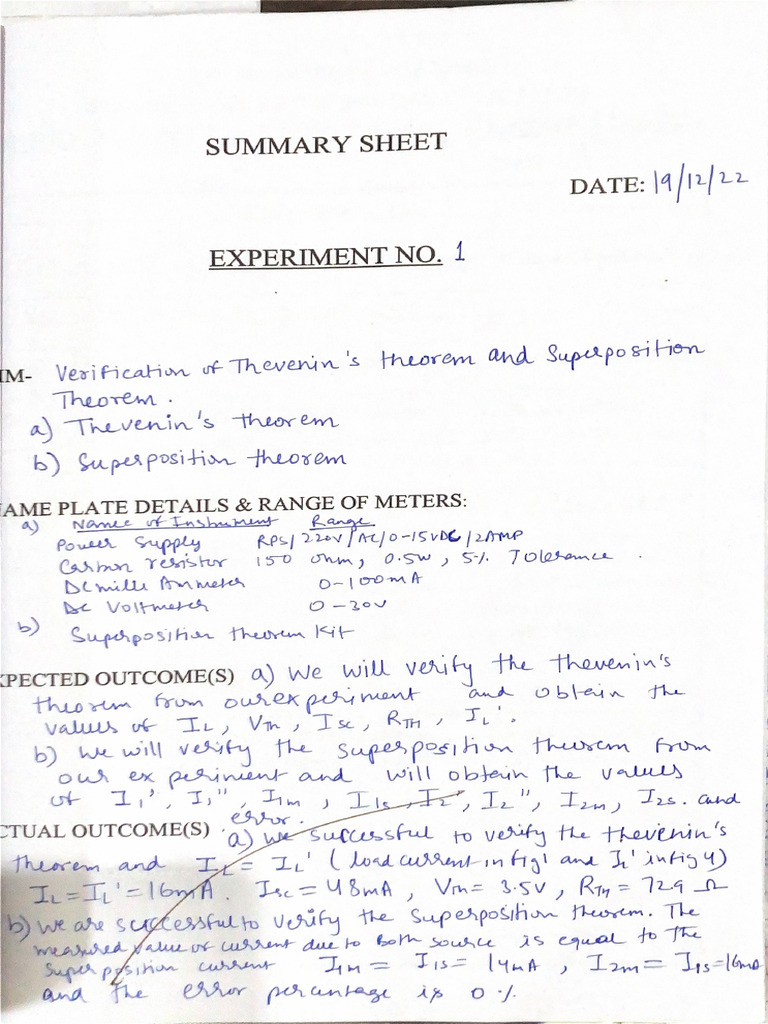 SUMMARY SHEET
DATE: 19/12/22
EXPERIMENT NO. 1
IM- Verification of Thevenin's theorem and Superposition
Theorem.
a) Thevenin's theorem
b) Superposition theorem
AME PLATE DETAILS & RANGE OF METERS:
a) Name of Instrument Range
Power Supply RPS/220V/AC/0-15VDC/2AMP
Carbon resistor 150 ohm, 0.5W, 5% Tolerance.
DC mille Ammeter 0-100mA
DC Voltmeter 0-30V
b) Superposition theorem Kit
XPECTED OUTCOME(S) a) We will verify the thevenin's
theorem from our experiment and obtain the
values of IL, VTH, ISC, RTH, IL'.
b) We will verify the superposition theorem from
our experiment and will obtain the values
of I1', I1", I1m, I1s, I2', I2", I2m, I2s. and
error.
CTUAL OUTCOME(S) a) We successful to verify the thevenin's
theorem and IL = IL' (load current in fig 1 and IL' in fig 4)
IL = IL' = 16mA. ISC = 48mA, VTH = 3.5V, RTH = 72.9 Ω
b) We are successful to verify the superposition theorem. The
measured value of current due to both source is equal to the
superposition current I1m = I1s = 14mA, I2m = I1s = 16mA
and the error percentage is 0%.